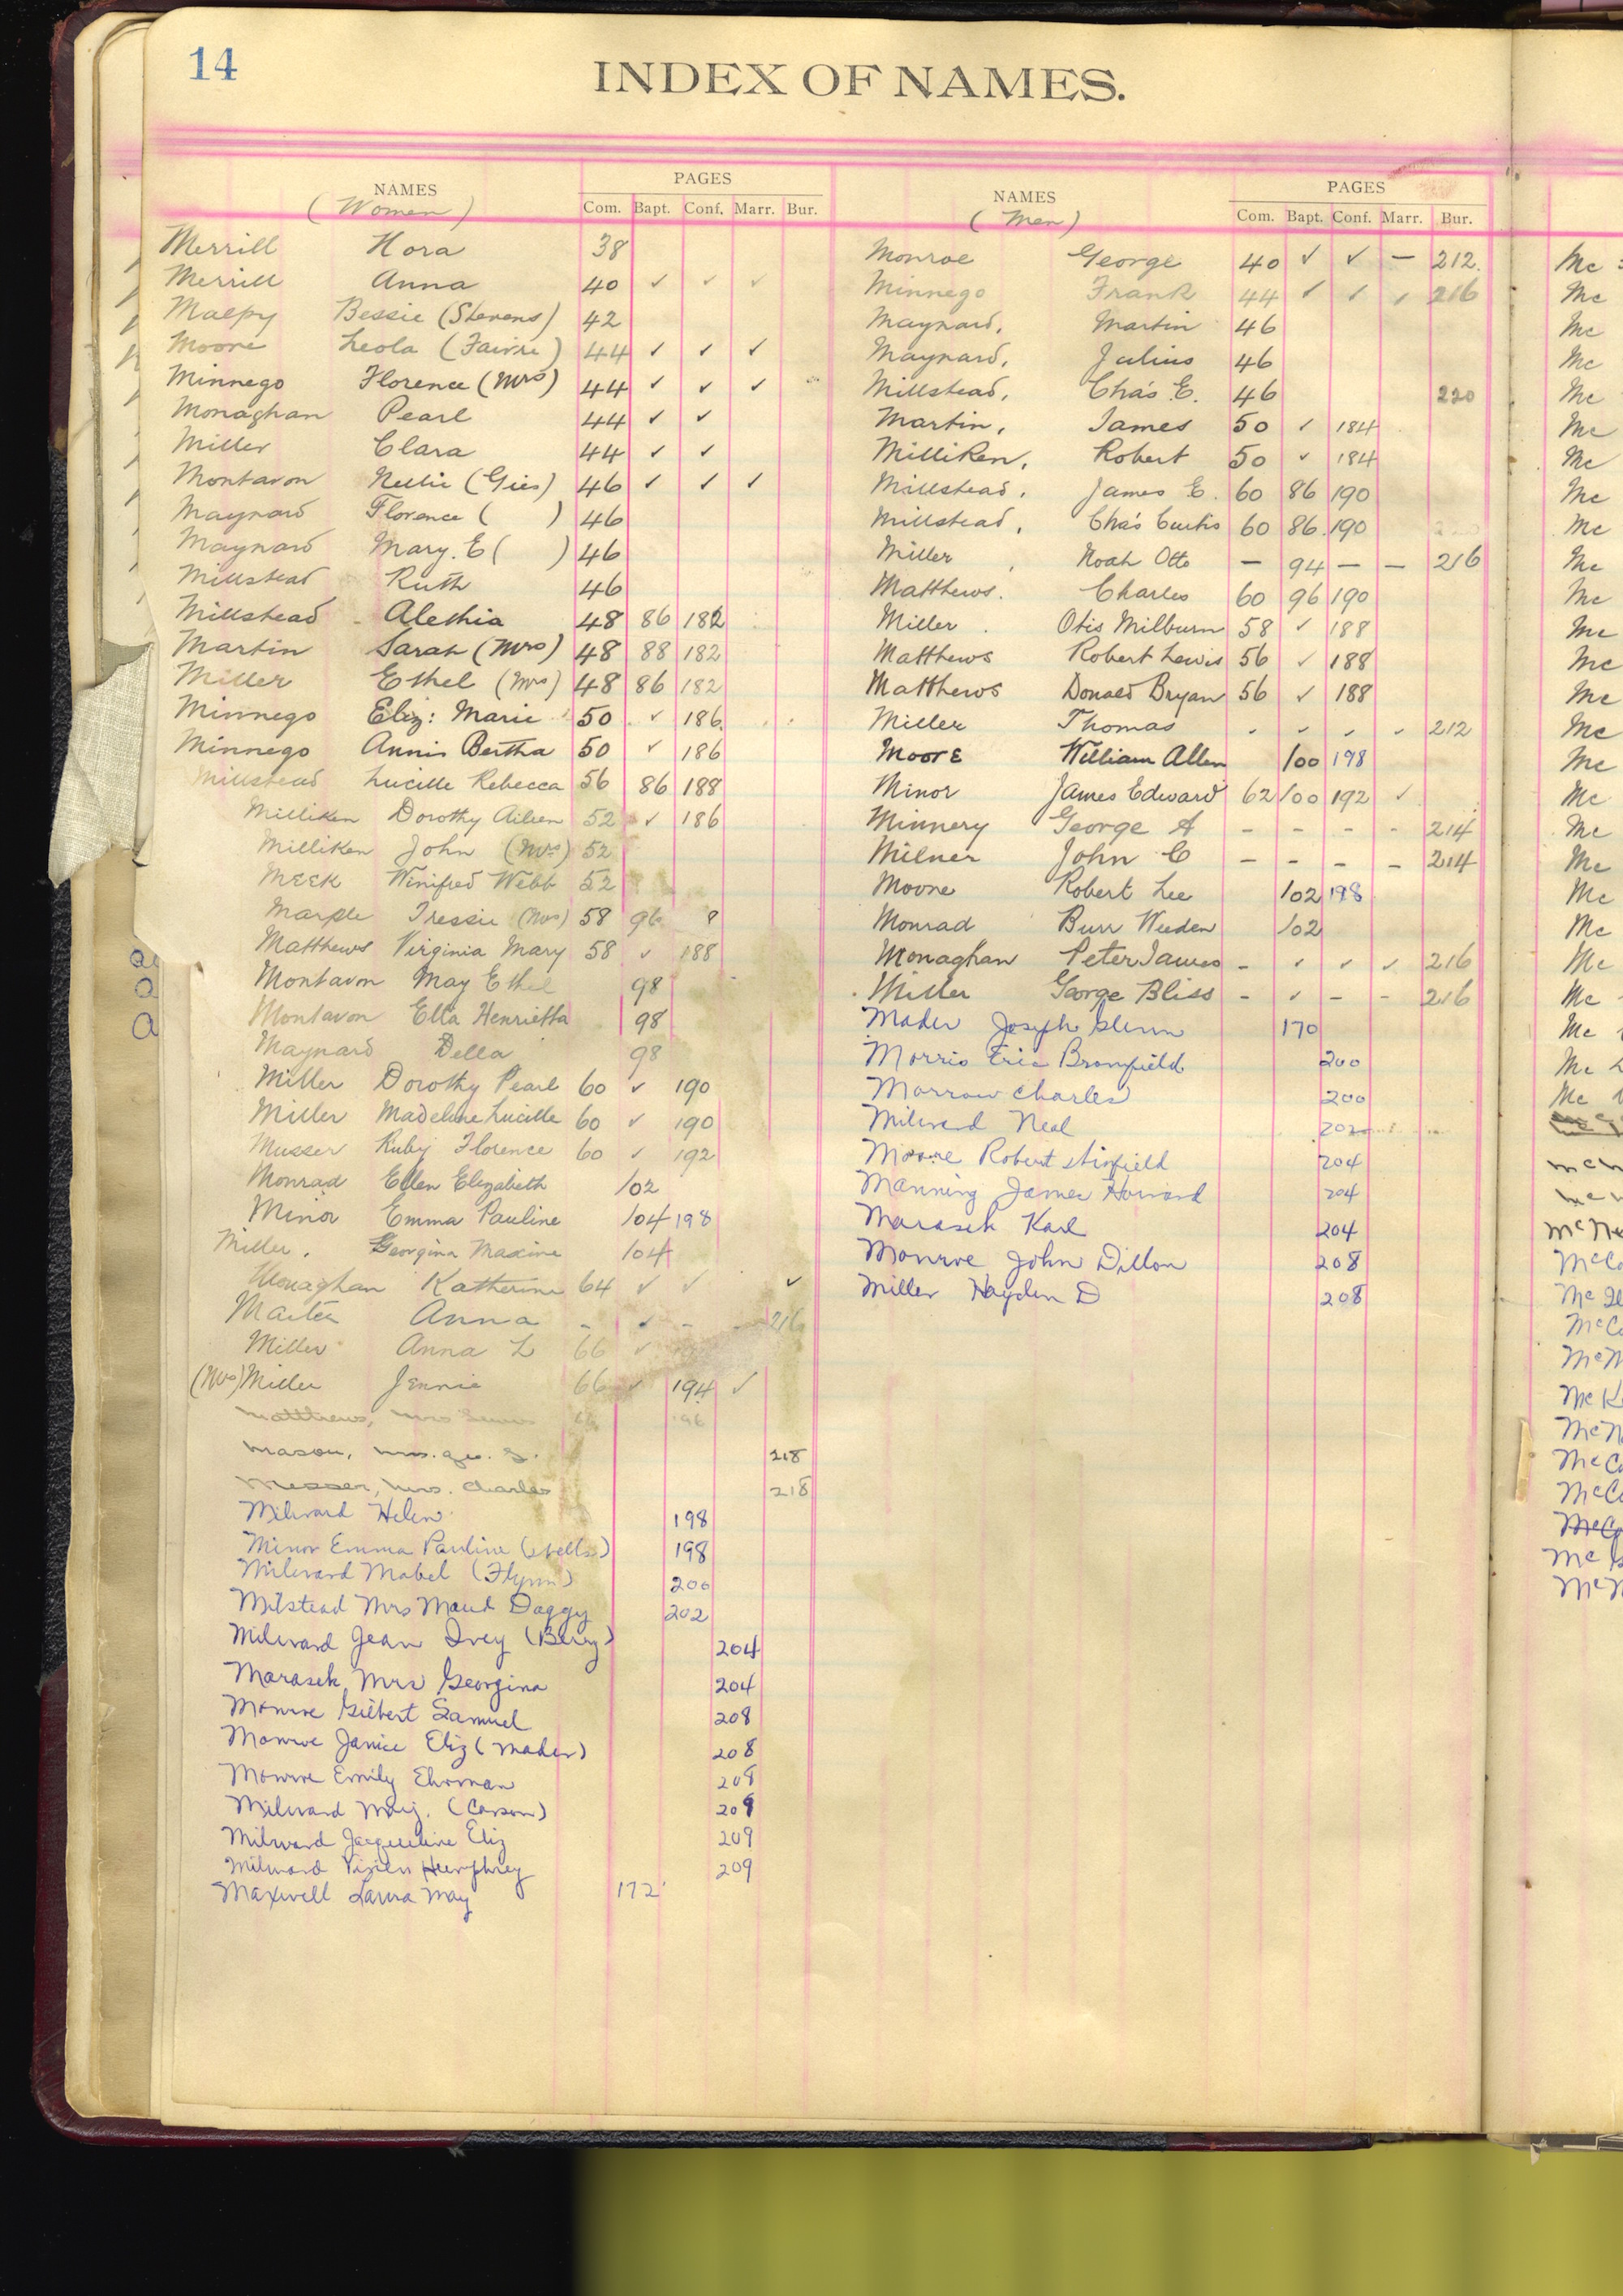 14
INDEX OF NAMES.
NAMES
(Women)
PAGES
Com. Bapt. Conf. Marr. Bur.
Merrill Nora 38
Merrill Anna 40 ✓ ✓ ✓
Malpy Bessie (Stevens) 42
Moore Leola 44 ✓ ✓ ✓
Minnego Florence (Mrs) 44 ✓ ✓ ✓
Monaghan Pearl 44 ✓ ✓
Miller Clara 44 ✓ ✓
Montavon Nellie (Gies) 46 ✓ ✓ ✓
Maynard Florence ( ) 46
Maynard Mary. E ( ) 46
Millstead Ruth 46
Millstead Alethia 48 86 182
Martin Sarah (Mrs) 48 88 182
Miller Ethel (Mrs) 48 86 182
Minnego Eliz: Marie 50 ✓ 186
Minnego Annis Bertha 50 ✓ 186
Millstead Lucille Rebecca 56 86 188
Milliken Dorothy Aileen 52 ✓ 186
Milliken John (Mrs) 52
Meek Winifred Webb 52
Marple Tressie (Mrs) 58 96 8
Matthews Virginia Mary 58 ✓ 188
Montavon May Ethel 98
Montavon Ella Henrietta 98
Maynard Della 98
Miller Dorothy Pearl 60 ✓ 190
Miller Madeline Lucille 60 ✓ 190
Musser Ruby Florence 60 ✓ 192
Monrad Ellen Elizabeth 102
Minor Emma Pauline 104 198
Miller. Georgina Maxine 104
Monaghan Katherine 64 ✓ ✓ ✓
Anna - ✓ - - 216
Miller Anna L 66 ✓
(Mrs) Miller Jennie 66 ✓ 194 ✓
Matthews, Mrs Lewis 66 196
Mason, Mrs. Geo. S. 218
Messer, Mrs. Charles 218
Milward Helen 198
Minor Emma Pauline 198
Milward Mabel (Flynn) 200
Milstead Mrs Maud Daggy 202
Milward Jean Ivey (Berry) 204
Marasek, Mrs Georgina 204
Monroe Gilbert Samuel 208
Monroe Janice Eliz (Mader) 208
Monroe Emily Ehrman 208
Milward Marj. (Carson) 209
Milward Jacqueline Eliz 209
Milward Humphrey 209
Maxwell Laura May 172
NAMES
(Men)
PAGES
Com. Bapt. Conf. Marr. Bur.
Monroe George 40 ✓ ✓ — 212.
Minnego Frank 44 ✓ ✓ ✓ 216
Maynard, Martin 46
Maynard, Julius 46
Millstead, Cha's E. 46 220
Martin, James 50 ✓ 184
Milliken, Robert 50 ✓ 184
Millstead, James E. 60 86 190
Millstead, Cha's Curtis 60 86 190
Miller, Noah Otto — 94 — — 216
Matthews. Charles 60 96 190
Miller. Otis Milburn 58 ✓ 188
Matthews Robert Lewis 56 ✓ 188
Matthews Donald Bryan 56 ✓ 188
Miller Thomas - - - - 212
Moore William Allen 100 198
Minor James Edward 62 100 192 ✓
Minnery George A - - - - 214
Milner John C - - - - 214
Moore Robert Lee 102 198
Monrad Burr Weeden 102
Monaghan Peter James - ✓ ✓ ✓ 216
Miller George Bliss - ✓ - - 216
Mader Joseph Glenn 170
Morris Eric Bromfield 200
Morrow Charles 200
Milward Neal 202
Moore Robert 204
Manning James Howard 204
Marasek Karl 204
Monroe John Dillon 208
Miller Hayden D 208
Mc
Mc
Mc
Mc
Mc
Mc
Mc
Mc
Mc
Mc
Mc
Mc
Mc
Mc
Mc
Mc
Mc
Mc
Mc
Mc
Mc
Mc
Mc
Mc
Mc
Mc